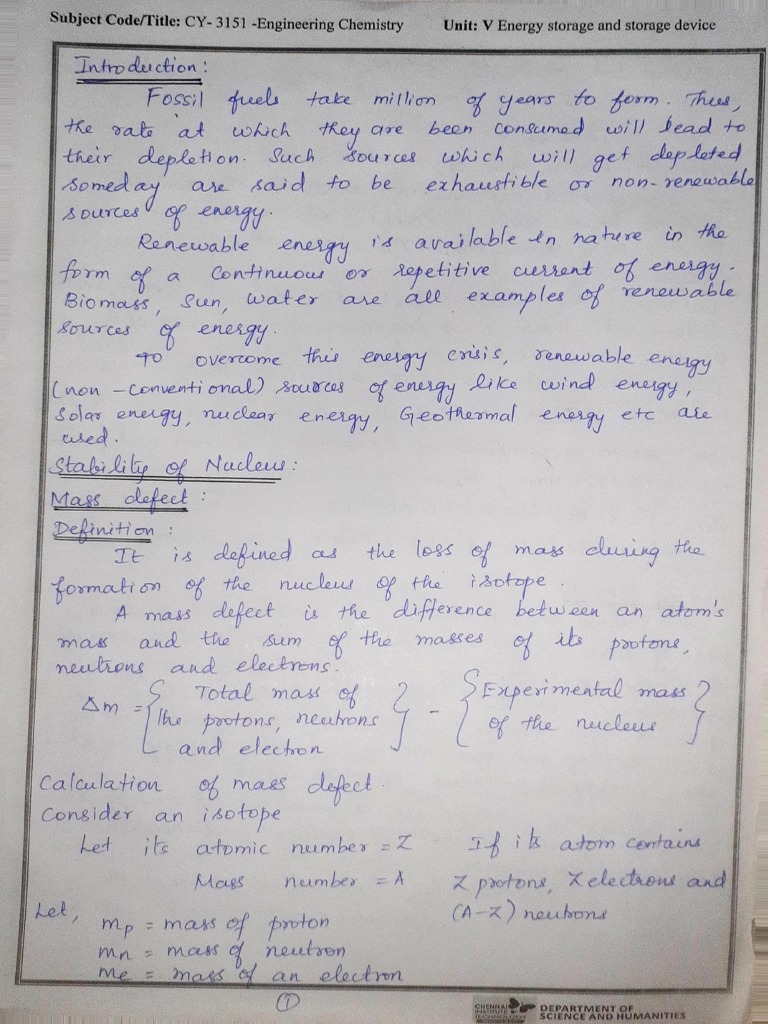 Subject Code/Title: CY- 3151 -Engineering Chemistry Unit: V Energy storage and storage device
Introduction:
Fossil fuels take million of years to form. Thus,
the rate at which they are been consumed will lead to
their depletion. Such sources which will get depleted
someday are said to be exhaustible or non-renewable
sources of energy.
Renewable energy is available in nature in the
form of a continuous or repetitive current of energy.
Biomass, Sun, water are all examples of renewable
sources of energy.
To overcome this energy crisis, renewable energy
(non-conventional) sources of energy like wind energy,
Solar energy, nuclear energy, Geothermal energy etc are
used.
Stability of Nucleus:
Mass defect:
Definition:
It is defined as the loss of mass during the
formation of the nucleus of the isotope.
A mass defect is the difference between an atom's
mass and the sum of the masses of its protons,
neutrons and electrons.
Δm = { Total mass of the protons, neutrons and electron } - { Experimental mass of the nucleus }
Calculation of mass defect.
Consider an isotope
Let its atomic number = Z If its atom contains
Mass number = A Z protons, Z electrons and
Let, (A-Z) neutrons
mp = mass of proton
mn = mass of neutron
me = mass of an electron
1
CHENNAI INSTITUTE OF TECHNOLOGY
DEPARTMENT OF
SCIENCE AND HUMANITIES